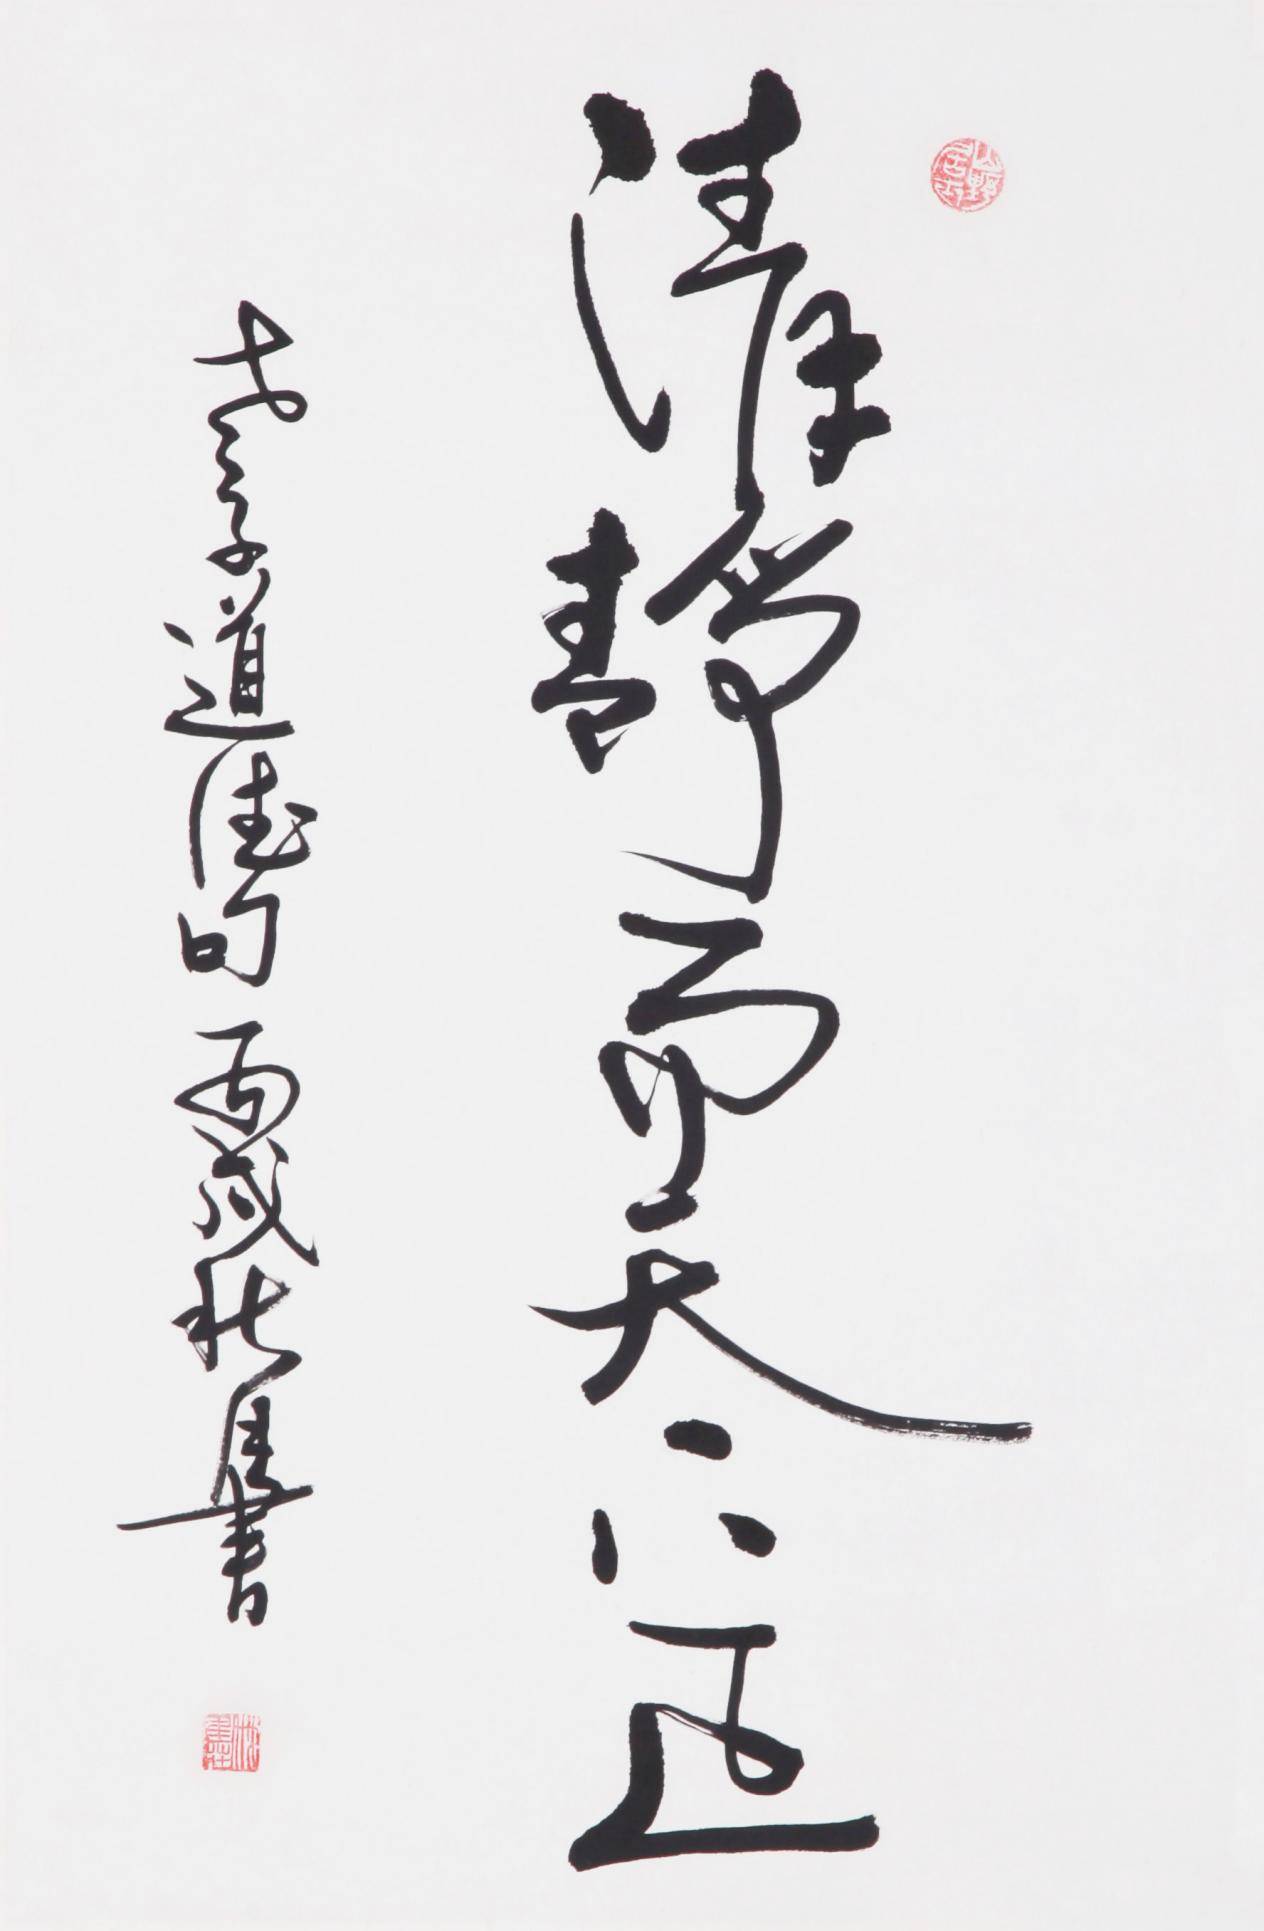 清靜為天下正
老子道德句 丙戌秋 書